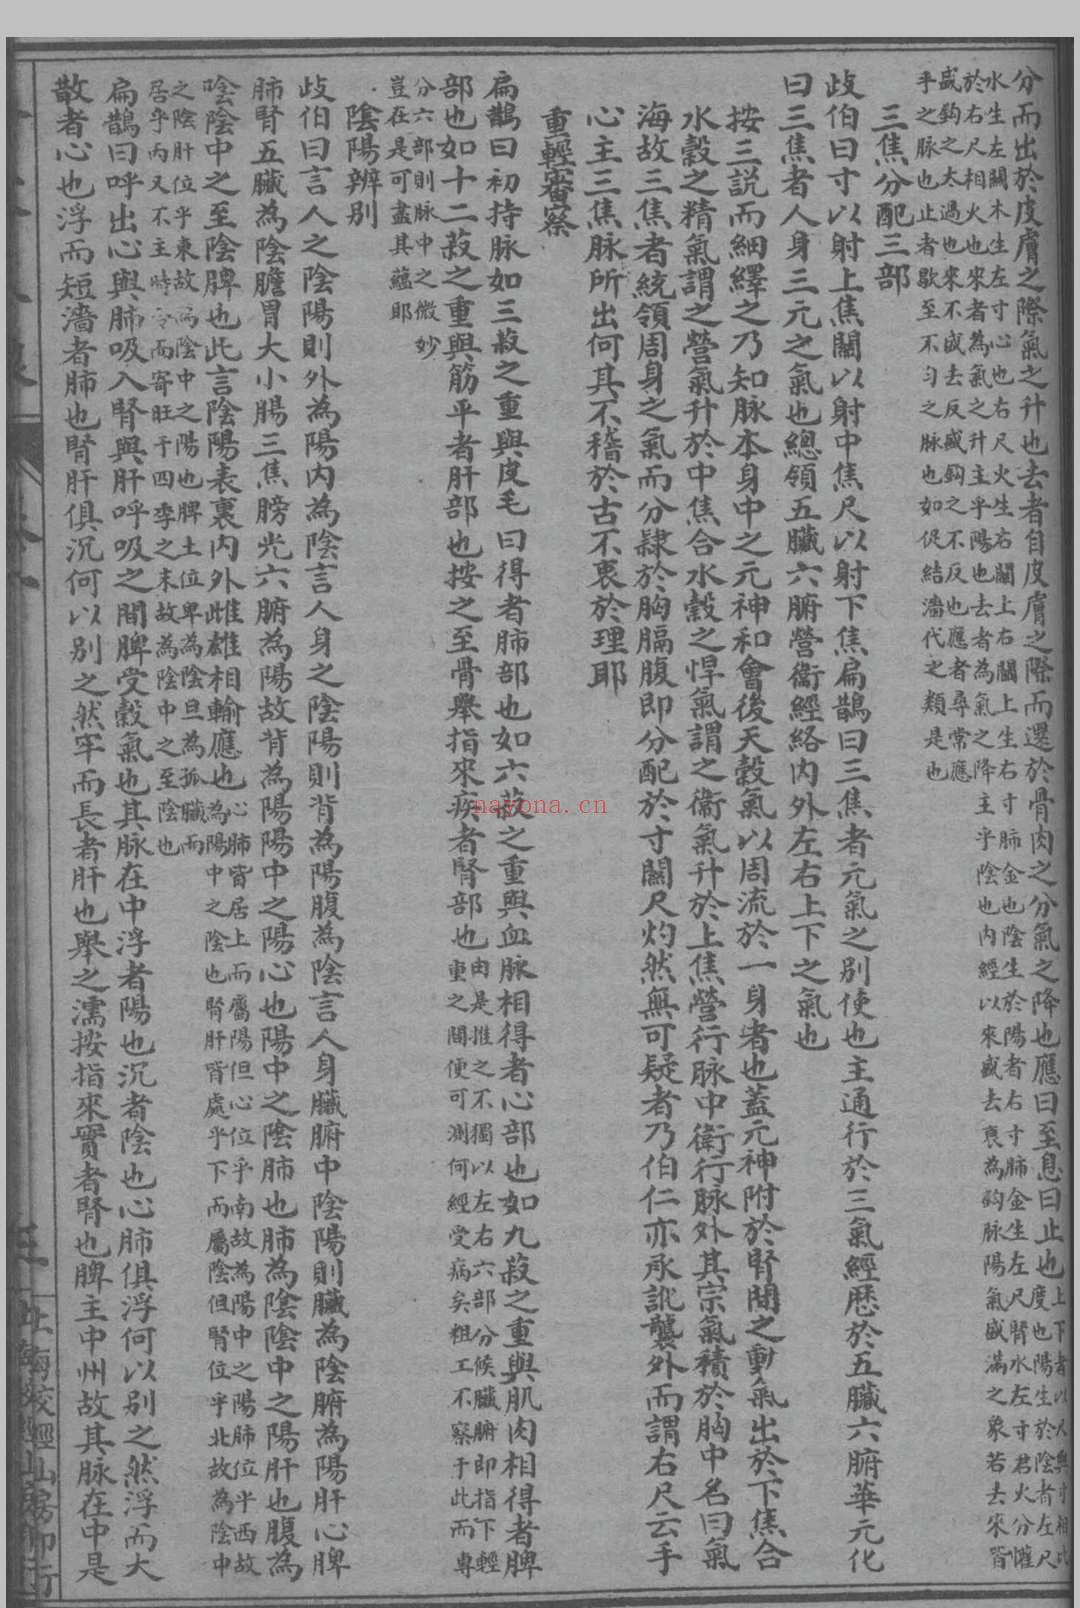 分而出於皮膚之際氣之升也去者自皮膚之際而還於骨肉之分氣之降也應曰至息曰止也
水生左關木生左寸心也右尺火生右關上右關上生右寸肺金也陰生於陽者右寸肺金生左尺腎水左寸君火分
於右尺相火也來者為氣之升主乎陽也去者為氣之降主乎陰也內經以來盛去衰為鈎脉陽氣盛滿之象若去來皆
盛鈎之太過也來不盛去反盛鈎之不反也應者尋常應
乎之脉也止者歇至不勻之脉也如促結濇代之類是也
三焦分配三部
歧伯曰寸以射上焦關以射中焦尺以射下焦扁鵲曰三焦者元氣之別使也主通行於三氣經歷於五臟六腑華元化
曰三焦者人身三元之氣也總領五臟六腑營衛經絡內外左右上下之氣也
按三説而細繹之乃知脉本身中之元神和會後天穀氣以周流於一身者也蓋元神附於腎間之動氣出於下焦合
水穀之精氣謂之營氣升於中焦合水穀之悍氣謂之衛氣升於上焦營行脉中衛行脉外其宗氣積於胸中名曰氣
海故三焦者統領周身之氣而分隸於胸膈腹即分配於寸關尺灼然無可疑者乃伯仁亦承訛襲外而謂右尺云手
心主三焦脉所出何其不稽於古不衷於理耶
重輕審察
扁鵲曰初持脉如三菽之重與皮毛曰得者肺部也如六菽之重與血脉相得者心部也如九菽之重與肌肉相得者脾
部也如十二菽之重與筋平者肝部也按之至骨舉指來疾者腎部也
由是推之不獨以左右六部分候臟腑即指下輕
重之間便可測何經受病矣粗工不察于此而專
分六部則脉中之微妙
豈在是可盡其蘊耶
陰陽辨別
歧伯曰言人之陰陽則外為陽內為陰言人身之陰陽則背為陽腹為陰言人身臟腑中陰陽則臟為陰腑為陽肝心脾
肺腎五臟為陰膽胃大小腸三焦膀光六腑為陽故背為陽陽中之陽心也陽中之陰肺也肺為陰陰中之陽肝也腹為
陰陰中之至陰脾也此言陰陽表裏內外雌雄相輸應也
心肺皆居上而屬陽但心位乎南故為陽中之陽肺位乎西故
為陽中之陰也腎肝皆處乎下而屬陰但腎位乎北故為陰中
之陰肝位乎東故為陰中之陽也脾土位卑為陰且為孤臟而
居乎內又不主時令而寄旺于四季之末故為陰中之至陰也
扁鵲曰呼出心與肺吸入腎與肝呼吸之間脾受穀氣也其脉在中浮者陽也沉者陰也心肺俱浮何以別之然浮而大
散者心也浮而短濇者肺也腎肝俱沉何以別之然牢而長者肝也舉之濡按指來實者腎也脾主中州故其脉在中是
上海校經山房印行
nayona.cn